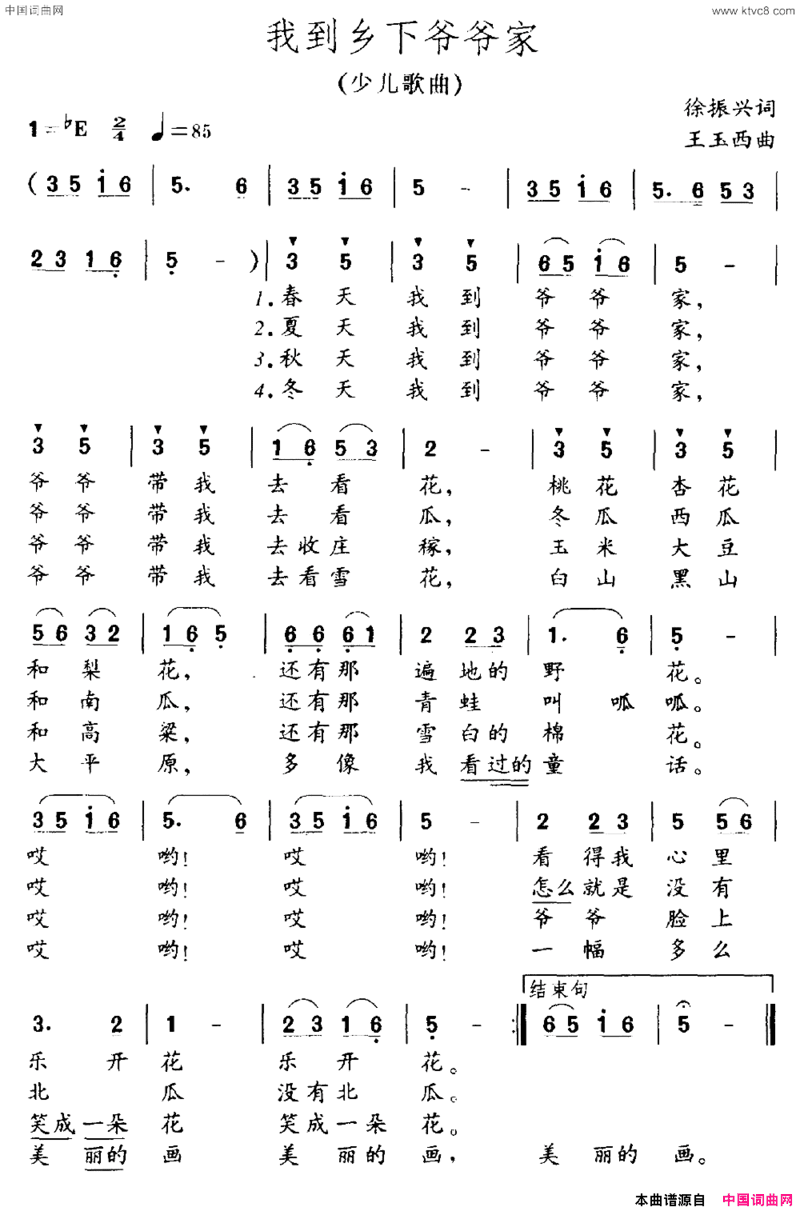 中国词曲网
www.ktvc8.com
我到乡下爷爷家
(少儿歌曲)
徐振兴词
1=♭E 2/4 ♩=85
王玉西曲
(3 5 i 6 | 5. 6 | 3 5 i 6 | 5 - | 3 5 i 6 | 5. 6 5 3 |
2 3 1 6 | 5 - ) | 3 5 | 3 5 | 6 5 i 6 | 5 - |
1.春天 我到 爷爷 家,
2.夏天 我到 爷爷 家,
3.秋天 我到 爷爷 家,
4.冬天 我到 爷爷 家,
3 5 | 3 5 | 1 6 5 3 | 2 - | 3 5 | 3 5 |
爷爷 带我 去看 花, 桃花 杏花
爷爷 带我 去看 瓜, 冬瓜 西瓜
爷爷 带我 去收庄 稼, 玉米 大豆
爷爷 带我 去看雪 花, 白山 黑山
5 6 3 2 | 1 6 5 | 6 6 6 1 | 2 2 3 | 1. 6 | 5 - |
和梨 花, 还有那 遍地的 野 花。
和南 瓜, 还有那 青蛙 叫呱 呱。
和高 粱, 还有那 雪白的 棉 花。
大平 原, 多像 我看过的 童 话。
3 5 i 6 | 5. 6 | 3 5 i 6 | 5 - | 2 2 3 | 5 5 6 |
哎 哟! 哎 哟! 看得我 心里
哎 哟! 哎 哟! 怎么就是 没有
哎 哟! 哎 哟! 爷爷 脸上
哎 哟! 哎 哟! 一幅 多么
结束句
3. 2 | 1 - | 2 3 1 6 | 5 - :| 6 5 i 6 | 5 - |
乐开 花 乐开 花。
北 瓜 没有北 瓜。
笑成一朵 花 笑成一朵 花。
美丽的 画 美丽的 画, 美丽的 画。
本曲谱源自 中国词曲网